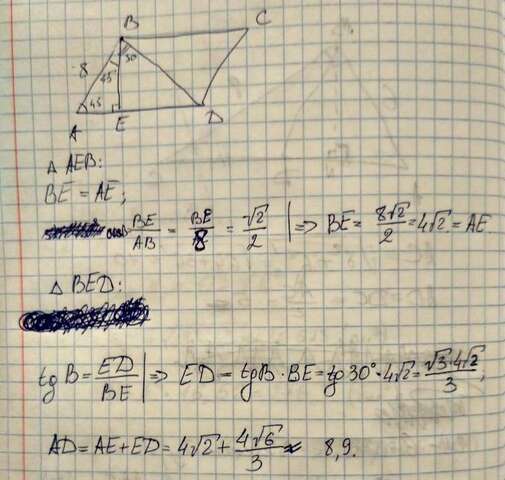 B
C
8
45
30
45
A
E
D
Δ AEB:
BE = AE;
cosB BE/AB = BE/8 = √2/2 | ⇒ BE = 8√2/2 = 4√2 = AE
Δ BED:
tgB = ED/BE | ⇒ ED = tgB · BE = tg 30° · 4√2 = √3·4√2/3;
AD = AE + ED = 4√2 + 4√6/3 ≈ 8,9.